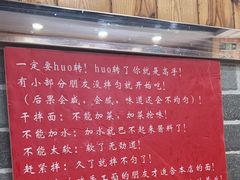 一定要huo转！huo转了你就是高手！
有小部分朋友没拌匀就开始吃！
（后果会咸，会腻，味道还会不均匀）！
干拌面：不能加菜，加菜抢味！
不能加水：加水就巴不起来酱料了！
不能太软：软了无劲道！
赶紧拌：久了就拌不匀了！
的朋友才适合本店的面！